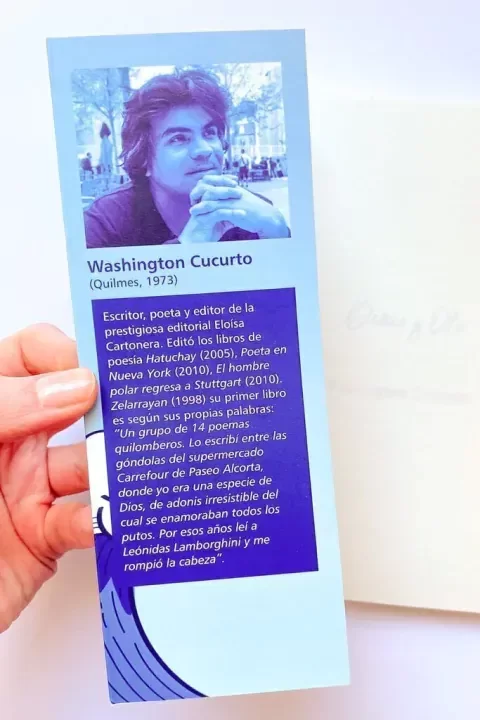 Washington Cucurto
(Quilmes, 1973)
Escritor, poeta y editor de la
prestigiosa editorial Eloisa
Cartonera. Editó los libros de
poesía Hatuchay (2005), Poeta en
Nueva York (2010), El hombre
polar regresa a Stuttgart (2010).
Zelarrayan (1998) su primer libro
es según sus propias palabras:
"Un grupo de 14 poemas
quilomberos. Lo escribí entre las
góndolas del supermercado
Carrefour de Paseo Alcorta,
donde yo era una especie de
Dios, de adonis irresistible del
cual se enamoraban todos los
putos. Por esos años leí a
Leónidas Lamborghini y me
rompió la cabeza".